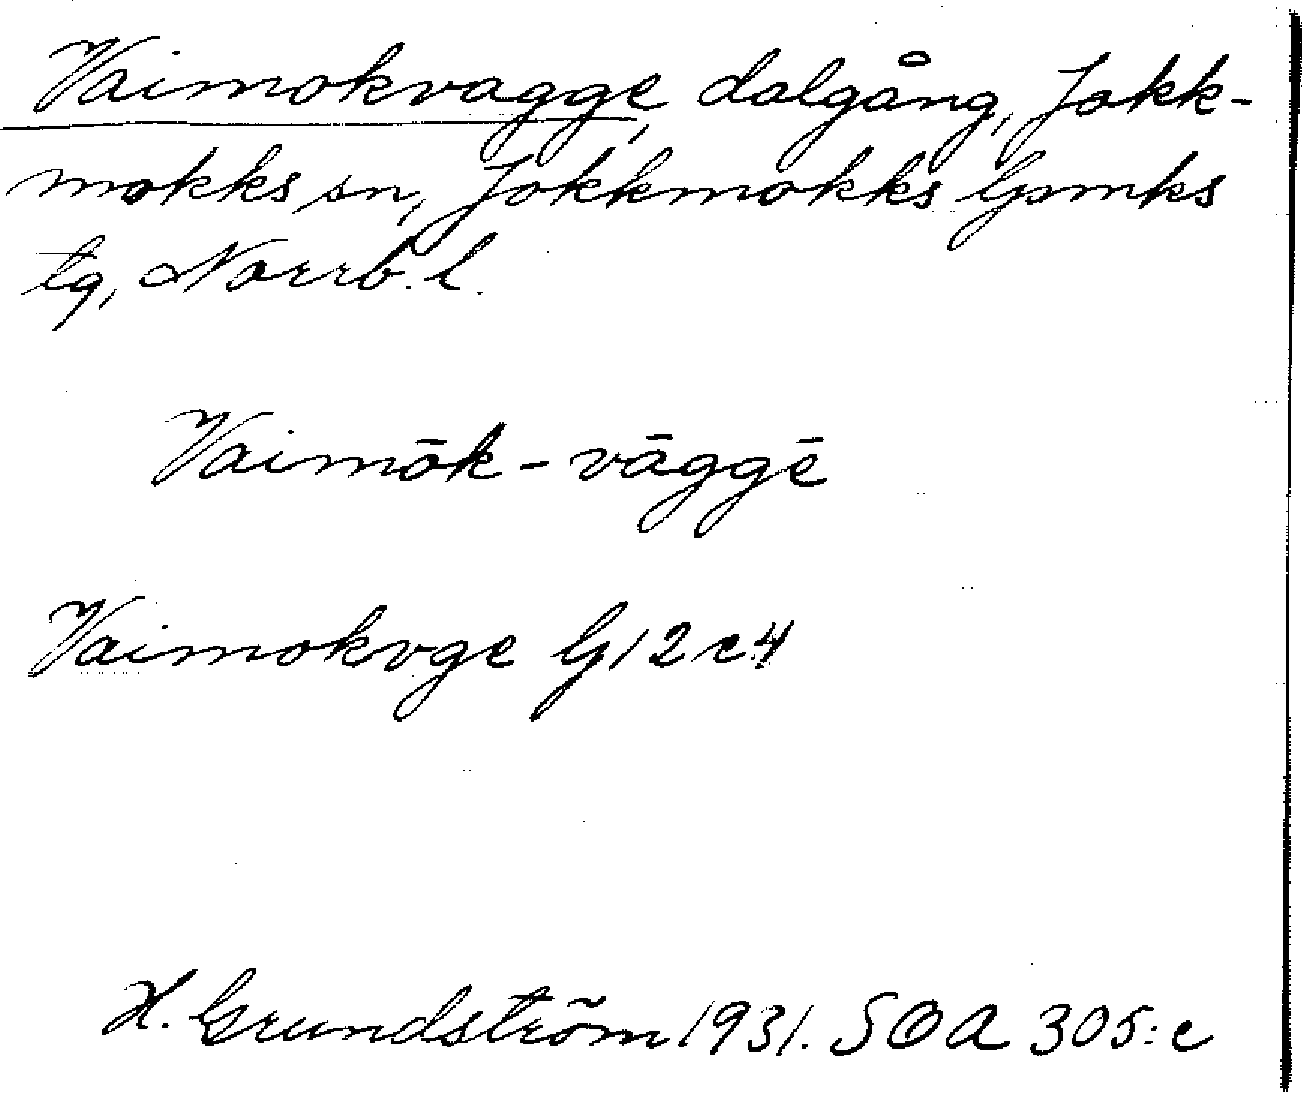 Vaimokvagge, dalgång, Jokk-
mokks sn, Jokkmokks Gsmks
tg, Norrb. l.
Vaimōk-vāggē
Vaimokvge G12c4
H. Grundström 1931. SOA 305:c